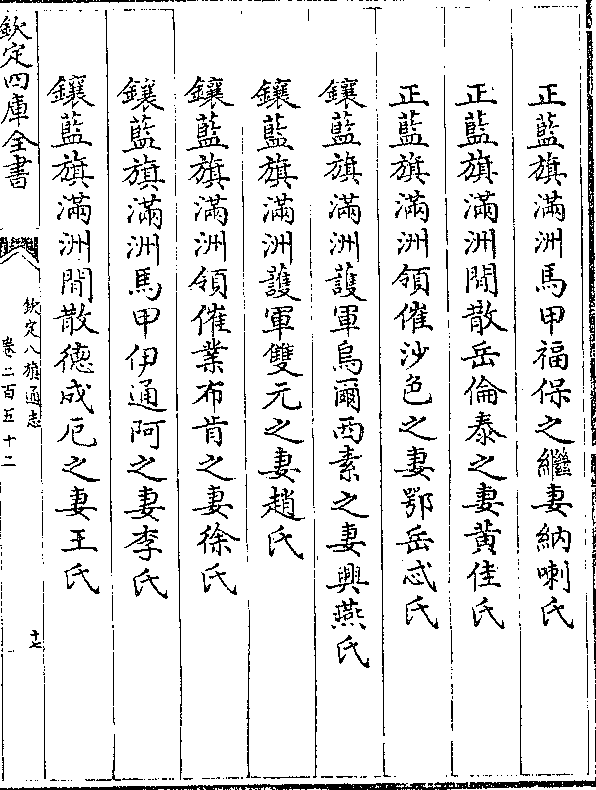 正藍旗滿洲馬甲福保之繼妻納喇氏
正藍旗滿洲閒散岳倫泰之妻黃佳氏
正藍旗滿洲領催沙色之妻鄂岳忒氏
鑲藍旗滿洲護軍烏爾西素之妻興燕氏
鑲藍旗滿洲護軍雙元之妻趙氏
鑲藍旗滿洲領催業布肯之妻徐氏
鑲藍旗滿洲馬甲伊通阿之妻李氏
鑲藍旗滿洲閒散德成厄之妻王氏
欽定四庫全書
欽定八旗通志
卷二百五十二
十七